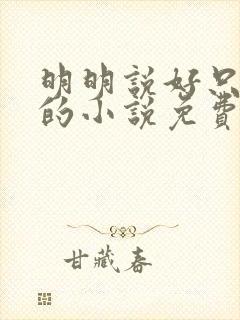 明明説好只
的小説免費
甘藏春